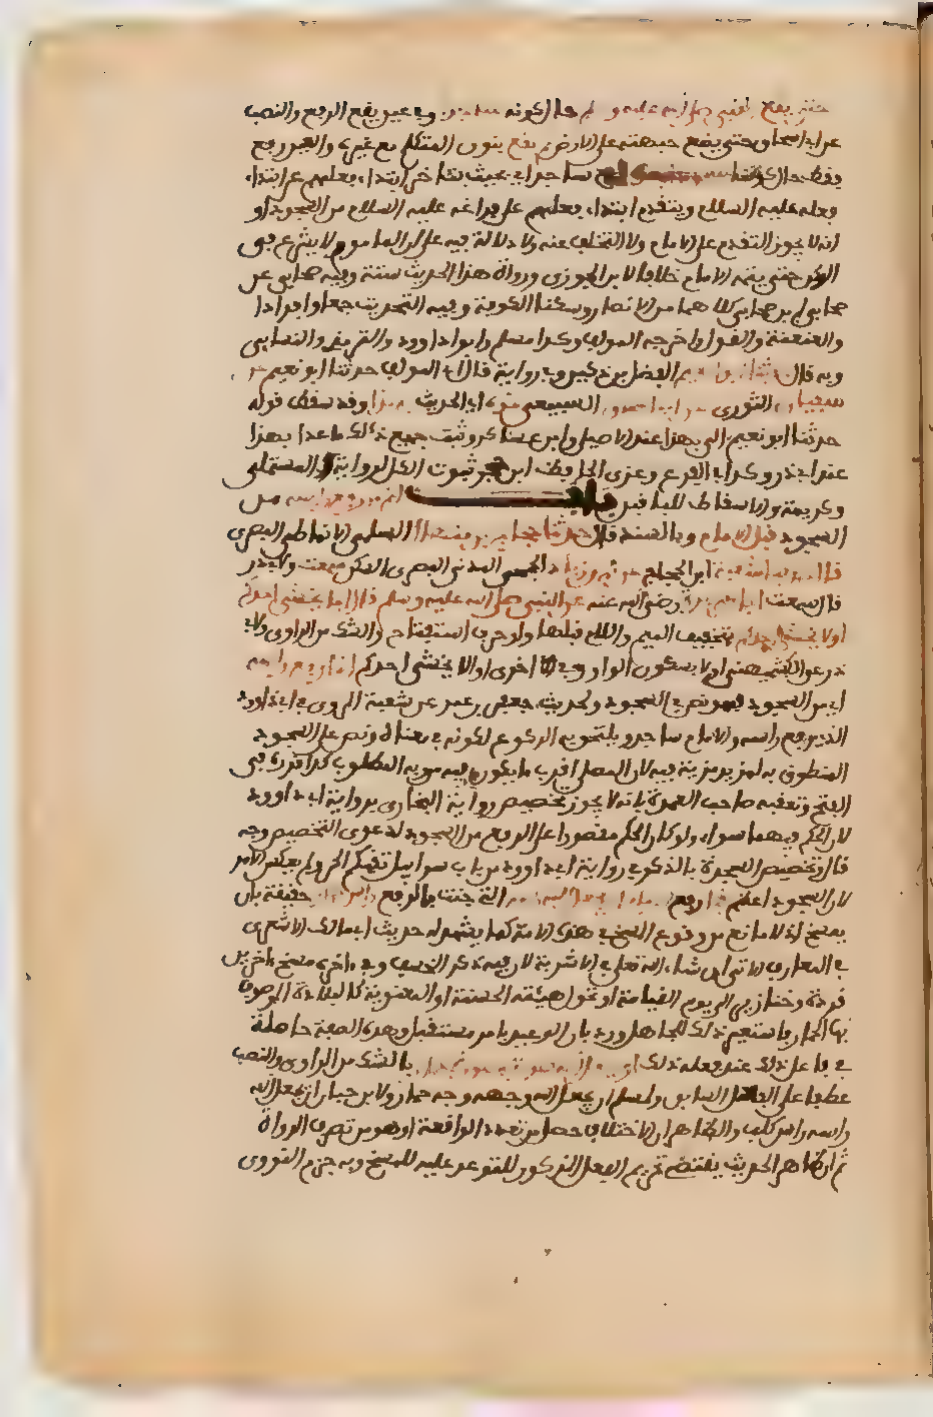 حتى يقع النبي صلى الله عليه و لم حال كونه ساجدا وفي عين يقع الرفع والنصب
عن ابي اسحاق حتى يضع جبهته على الارض ثم نقع بنون المتكلم مع غيره والعين رفع
فقط حال كوننا ساجدا بحيث يتاخر ابتداء فعلهم عن ابتداء
فعله عليه السلام ويتقدم ابتداء فعلهم على فراغه عليه السلام من السجود او
انه لا يجوز التقدم على الامام ولا التخلف عنه ولا دلالة فيه على ان الماموم لا يشرع في
الركن حتى يتمه الامام خلافا لابن الجوزي ورواة هذا الحديث ستة وفيه صحابي عن
صحابي ابن صحابي كلاهما من الانصار وسكنا الكوفة وفيه التحديث جمعا وافرادا
والعنعنة والقول واخرجه المولف وكذا مسلم وابو داوود والترمذي والنسايي
وبه قال حدثنا ابو نعيم الفضل بن دكين وفي رواية قال اي المولف حدثنا ابو نعيم عن
سفيان الثوري عن ابي اسحاق السبيعي نحوه اي الحديث بهذا وقد سقط قوله
حدثنا ابو نعيم الى بهذا عند الاصيلي وابن عساكر وثبت جميع ذلك ما عدا بهذا
عند ابي ذر وكذا في الفرع وعزى الحافظ ابن حجر ثبوت الكل لرواية المستملي
وكريمة والاسقاط للباقين باب اثم من رفع راسه من
السجود قبل الامام وبالسند قال حدثنا حجاج بن منهال السلمي الانماطي البصري
قال حدثنا شعبة ابن الحجاج عن محمد بن زياد الجمحي المدني البصري السكن سمعت ولابي ذر
قال سمعت ابا هريرة رضي الله عنه عن النبي صلى الله عليه وسلم قال اما يخشى احدكم
اولا يخشى احدكم بتخفيف الميم واللام قبلها واو حرف استفتاح والشك من الراوي ولابي
ذر عن الكشميهني اولا بسكون الواو وفي اخرى او الا يخشى احدكم اذا رفع راسه
اي من السجود فهو نص في السجود لحديث حفص بن عمر عن شعبة المروي في ابي داوود
الذي يرفع راسه والامام ساجد ويلتحق به الركوع لكونه في معناه ونص على السجود
المنطوق به لمزيد مزية فيه لان المصلي اقرب ما يكون فيه من ربه المطلوب كذا قرره في
الفتح وتعقبه صاحب العمدة بانه لا يجوز تخصيص رواية البخاري برواية ابي داوود
لان الحكم فيهما سواء ولو كان الحكم مقصورا على الرفع من السجود لدعوى التخصيص وجه
قال وتخصيص السجدة بالذكر في رواية ابي داوود من باب سرابيل تقيكم الحر ولم يعكس الامر
لان السجود اعظم راسه قبل الامام ان يجعل الله راسه التي جنت بالرفع راس حمار حقيقة بان
يمسخ اذ لا مانع من وقوع المسخ في هذه الامة كما يشهد له حديث ابي مالك الاشعري
في المعازف الاتي ان شاء الله تعلى في الاشربة لان فيه ذكر الخسف وفي اخره مسخ اخرين
قردة وخنازير الى يوم القيامة او تحول هيئته الحسنة او المعنوية كالبلادة الموصوف
بها الحمار فاستعير ذلك للجاهل ورد بان الوعيد بامر مستقبل وهذه الصفة حاصلة
في فاعل ذلك عند فعله ذلك او يجعل الله صورته صورة حمار بالشك من الراوي والنصب
عطفا على الفعل السابق ولمسلم ان يجعل الله وجهه وجه حمار ولابن حبان ان يجعل الله
راسه راس كلب والظاهر ان الاختلاف حصل من تعدد الواقعة او هو من تصرف الرواة
ثم ان ظاهر الحديث يقتضي تحريم الفعل المذكور للتوعد عليه بالمسخ وبه جزم النووي